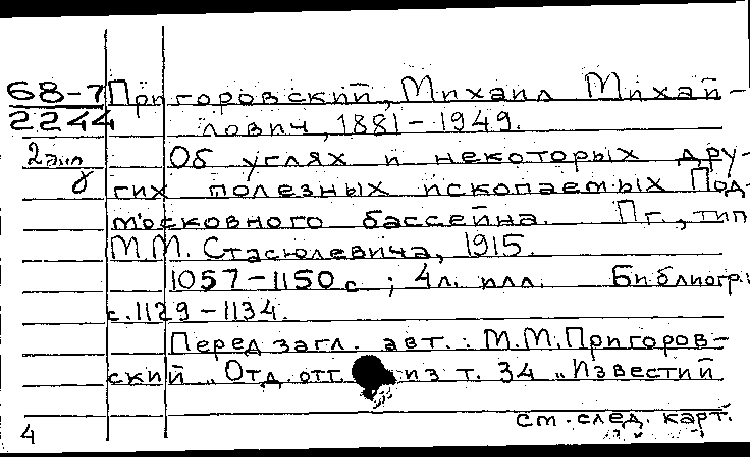 68-7 Пригоровский, Михаил Михай-
2244 лович, 1881-1949.
2 экз Об углях и некоторых дру-
гих полезных ископаемых Под-
московного бассейна. Пг., тип
М.М. Стасюлевича, 1915.
1057-1150 с.; 4 л. илл. Библиогр.:
с. 1129-1134.
Перед загл. авт.: М.М. Пригоров-
ский. Отд. отт. из т. 34 „Известий
см. след. карт.
4